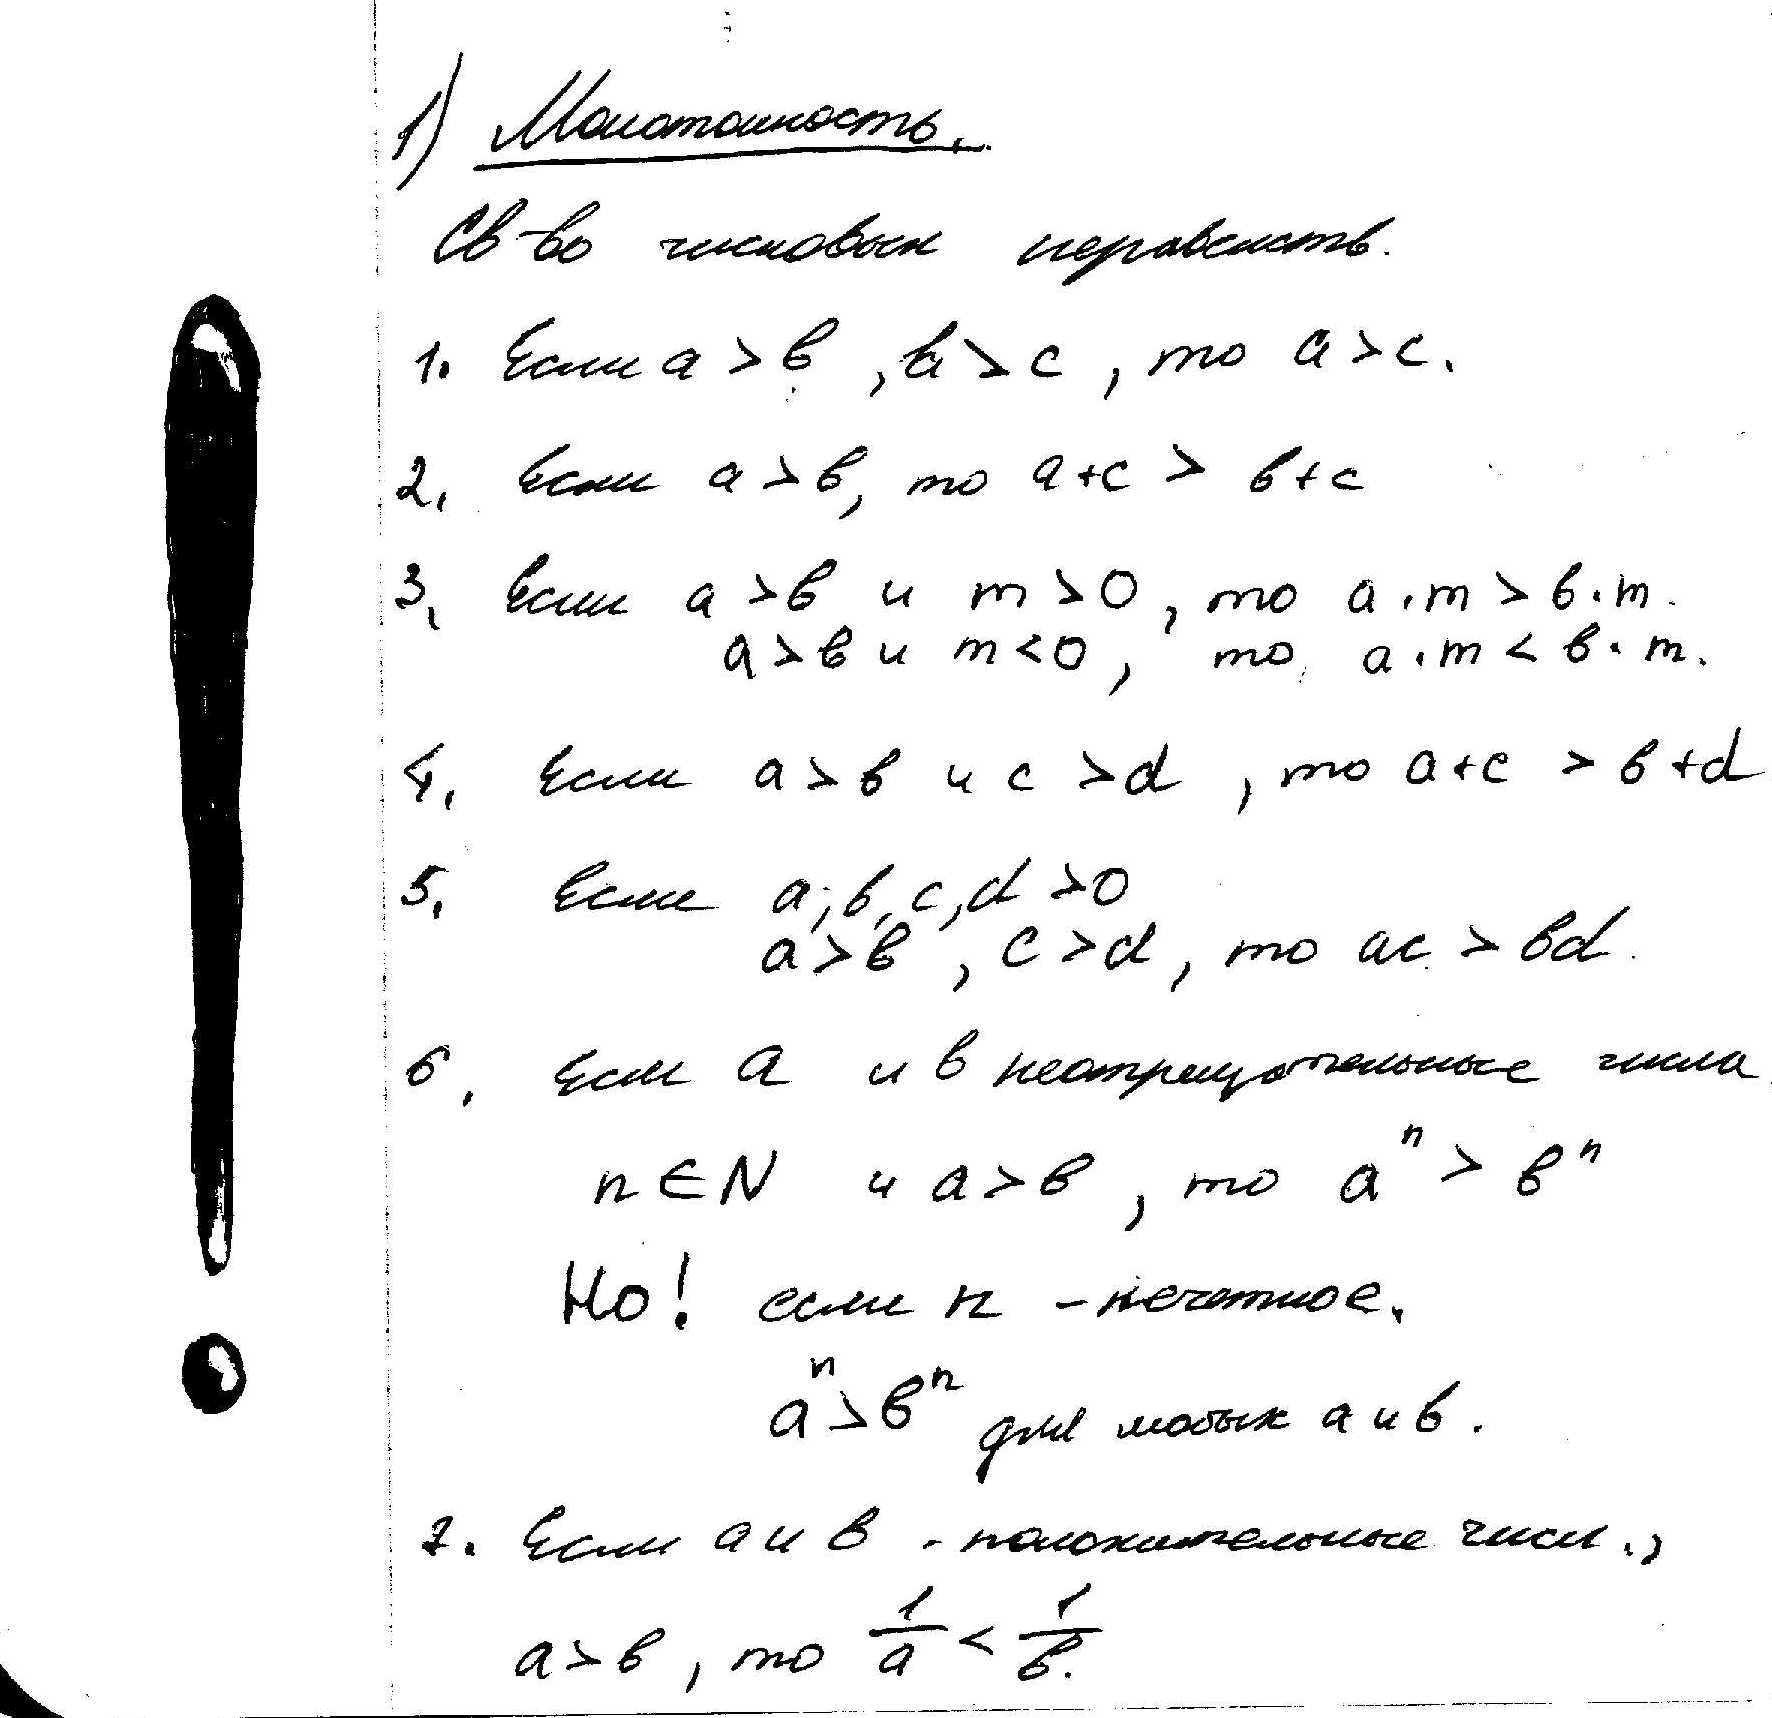 1) Монотонность.
Св-во числовых неравенств.
1. Если a > в, в > c, то a > c.
2. Если a > в, то a+c > в+c
3. Если a > в и m > 0, то a·m > в·m.
a > в и m < 0, то a·m < в·m.
4. Если a > в и c > d, то a+c > в+d
5. Если a, в, c, d > 0
a > в, c > d, то ac > вd.
6. Если a и в неотрицательные числа
n ∈ N и a > в, то aⁿ > вⁿ
Но! если n - нечетное.
aⁿ > вⁿ для любых a и в.
7. Если a и в - положительные числ.,
a > в, то 1/a < 1/в.